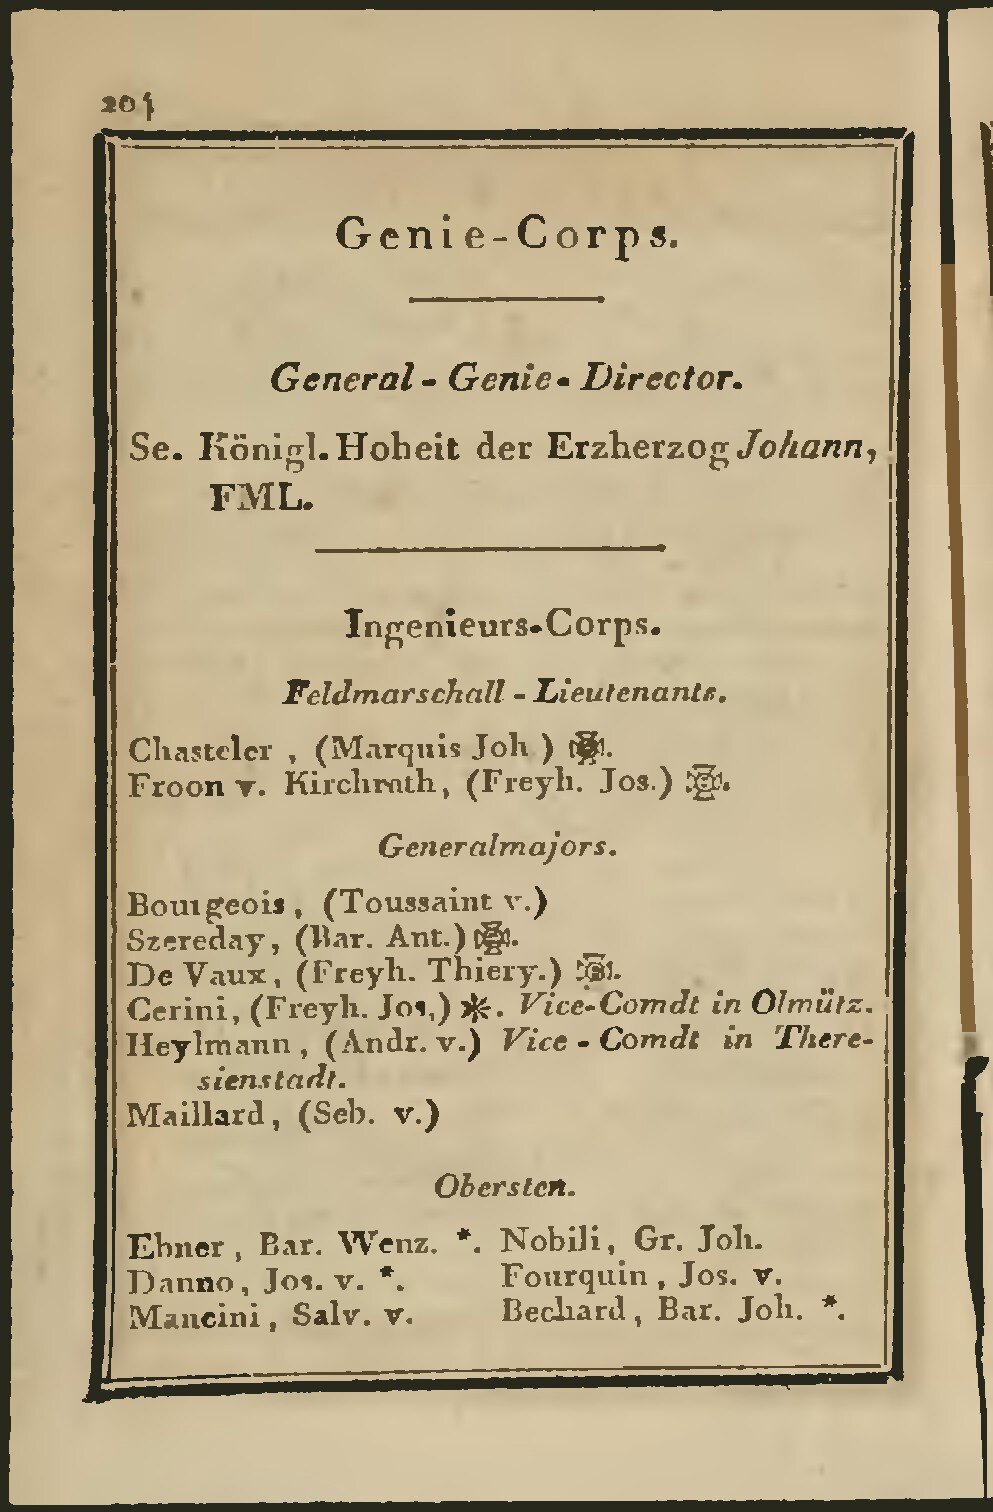 204
Genie-Corps.
General - Genie - Director.
Se. Königl. Hoheit der Erzherzog Johann,
FML.
Ingenieurs-Corps.
Feldmarschall - Lieutenants.
Chasteler , (Marquis Joh )
Froon v. Kirchrath, (Freyh. Jos.)
Generalmajors.
Bourgeois , (Toussaint v.)
Szereday, (Bar. Ant.)
De Vaux, (Freyh. Thiery.)
Cerini, (Freyh. Jos.) *. Vice-Comdt in Olmütz.
Heylmann , (Andr. v.) Vice - Comdt in There-
sienstadt.
Maillard, (Seb. v.)
Obersten.
Ebner , Bar. Wenz. *.
Danno, Jos. v. *.
Mancini, Salv. v.
Nobili, Gr. Joh.
Fourquin , Jos. v.
Bechard, Bar. Joh. *.